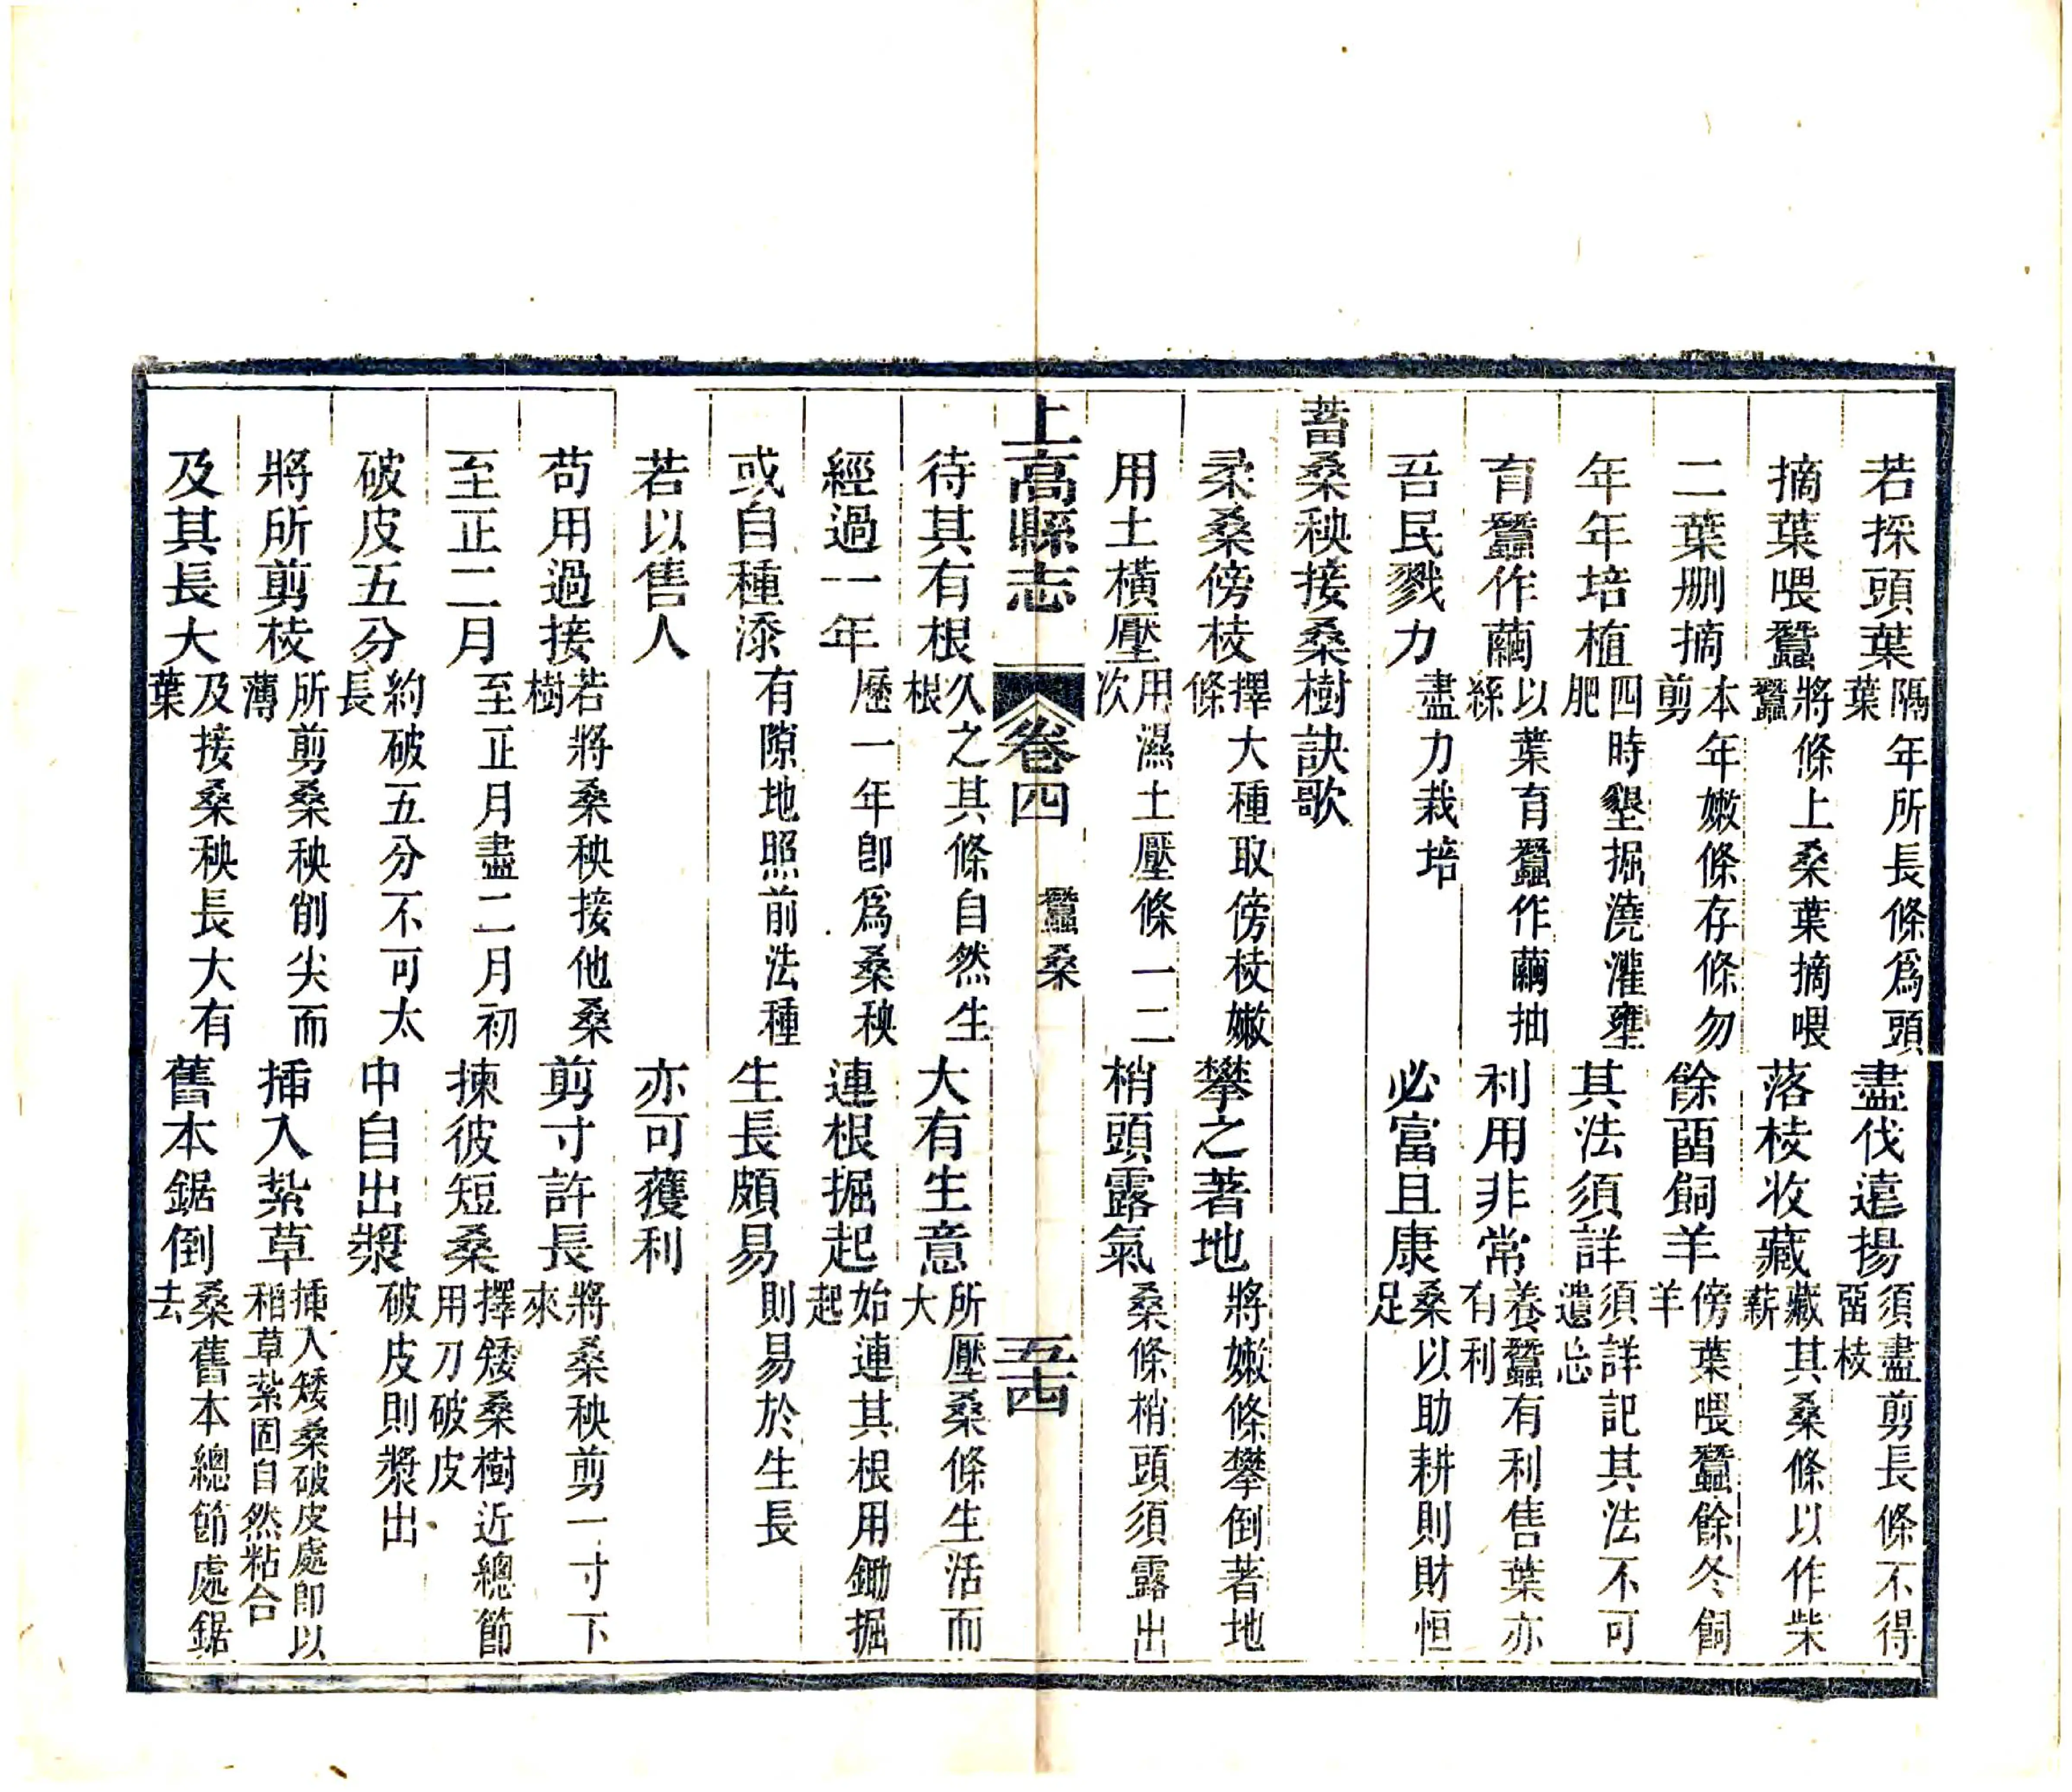 若採頭葉隔年所長條爲頭葉盡伐遠揚須盡剪長條不得畱枝
摘葉喂蠶將條上桑葉摘喂蠶落枝收藏藏其桑條以作柴薪
二葉删摘本年嫩條存條勿剪餘畱飼羊傍葉喂蠶餘冬飼羊
年年培植四時墾掘澆灌壅肥其法須詳須詳記其法不可遺忘
育蠶作繭以葉育蠶作繭抽絲利用非常養蠶有利售葉亦有利
吾民戮力盡力栽培必富且康桑以助耕則財恒足
蓄桑秧接桑樹訣歌
柔桑傍枝擇大種取傍枝嫩條攀之著地將嫩條攀倒著地
用土橫壓用濕土壓條一二次梢頭露氣桑條梢頭須露出
上高縣志 卷四 蠶桑 五十四
待其有根久之其條自然生根大有生意所壓桑條生活而大
經過一年歷一年卽爲桑秧連根掘起始連其根用鋤掘起
或自種添有隙地照前法種生長頗易則易於生長
若以售人亦可獲利
苟用過接若將桑秧接他桑樹剪寸許長將桑秧剪一寸下來
至正二月至正月盡二月初揀彼短桑擇矮桑樹近總節用刀破皮
破皮五分約破五分不可太長中自出漿破皮則漿出
將所剪枝所剪桑秧削尖而薄插入紮草插入矮桑破皮處卽以稻草紮固自然粘合
及其長大及接桑秧長大有葉舊本鋸倒桑舊本總節處鋸去